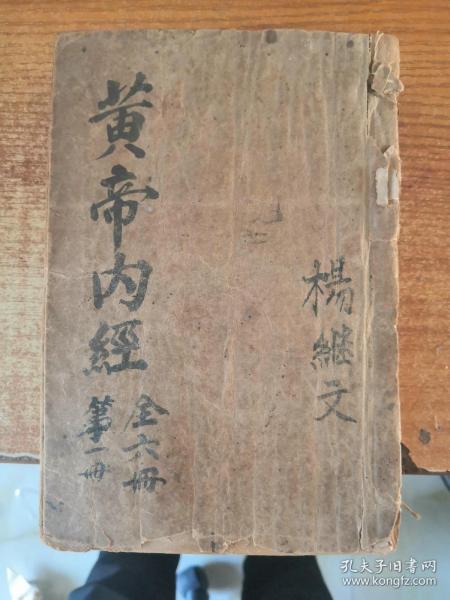 楊継文
黄帝内經
全六冊
第一冊
孔夫子旧书网
www.kongfz.com